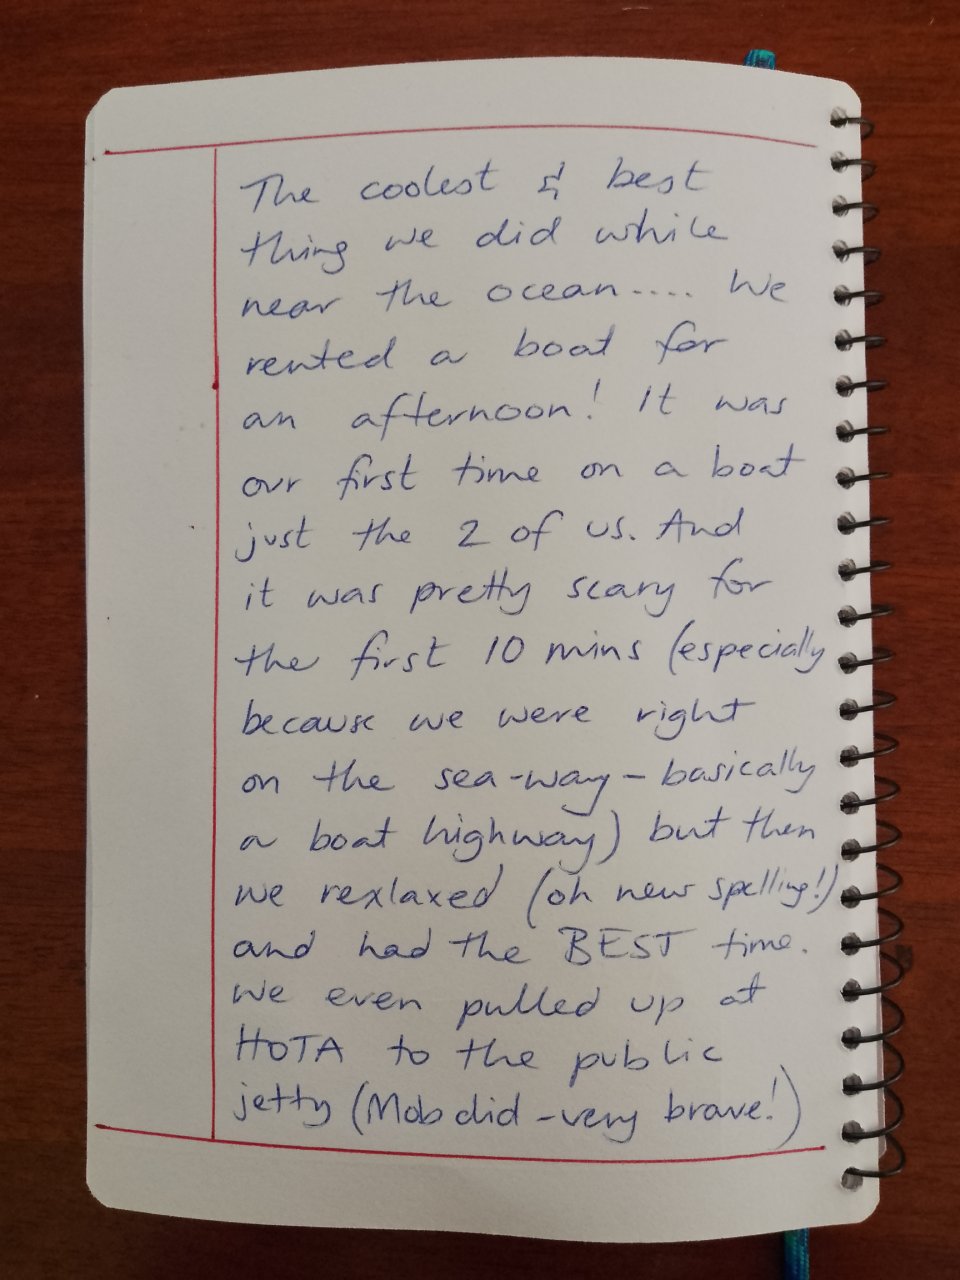 The coolest & best
thing we did while
near the ocean.... We
rented a boat for
an afternoon! It was
our first time on a boat
just the 2 of us. And
it was pretty scary for
the first 10 mins (especially
because we were right
on the sea-way - basically
a boat highway) but then
we rexlaxed (oh new spelling!)
and had the BEST time.
We even pulled up at
HOTA to the public
jetty (Mob did - very brave!)